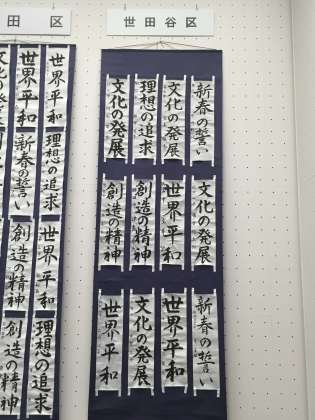 世田谷区
新春の誓い
文化の発展
理想の追求
文化の発展
文化の発展
世界平和
創造の精神
創造の精神
新春の誓い
世界平和
文化の発展
世界平和
田区
世界平和
世界平和
理想の追求
新春の誓い
世界平和
創造の精神
理想の追求
創造の精神